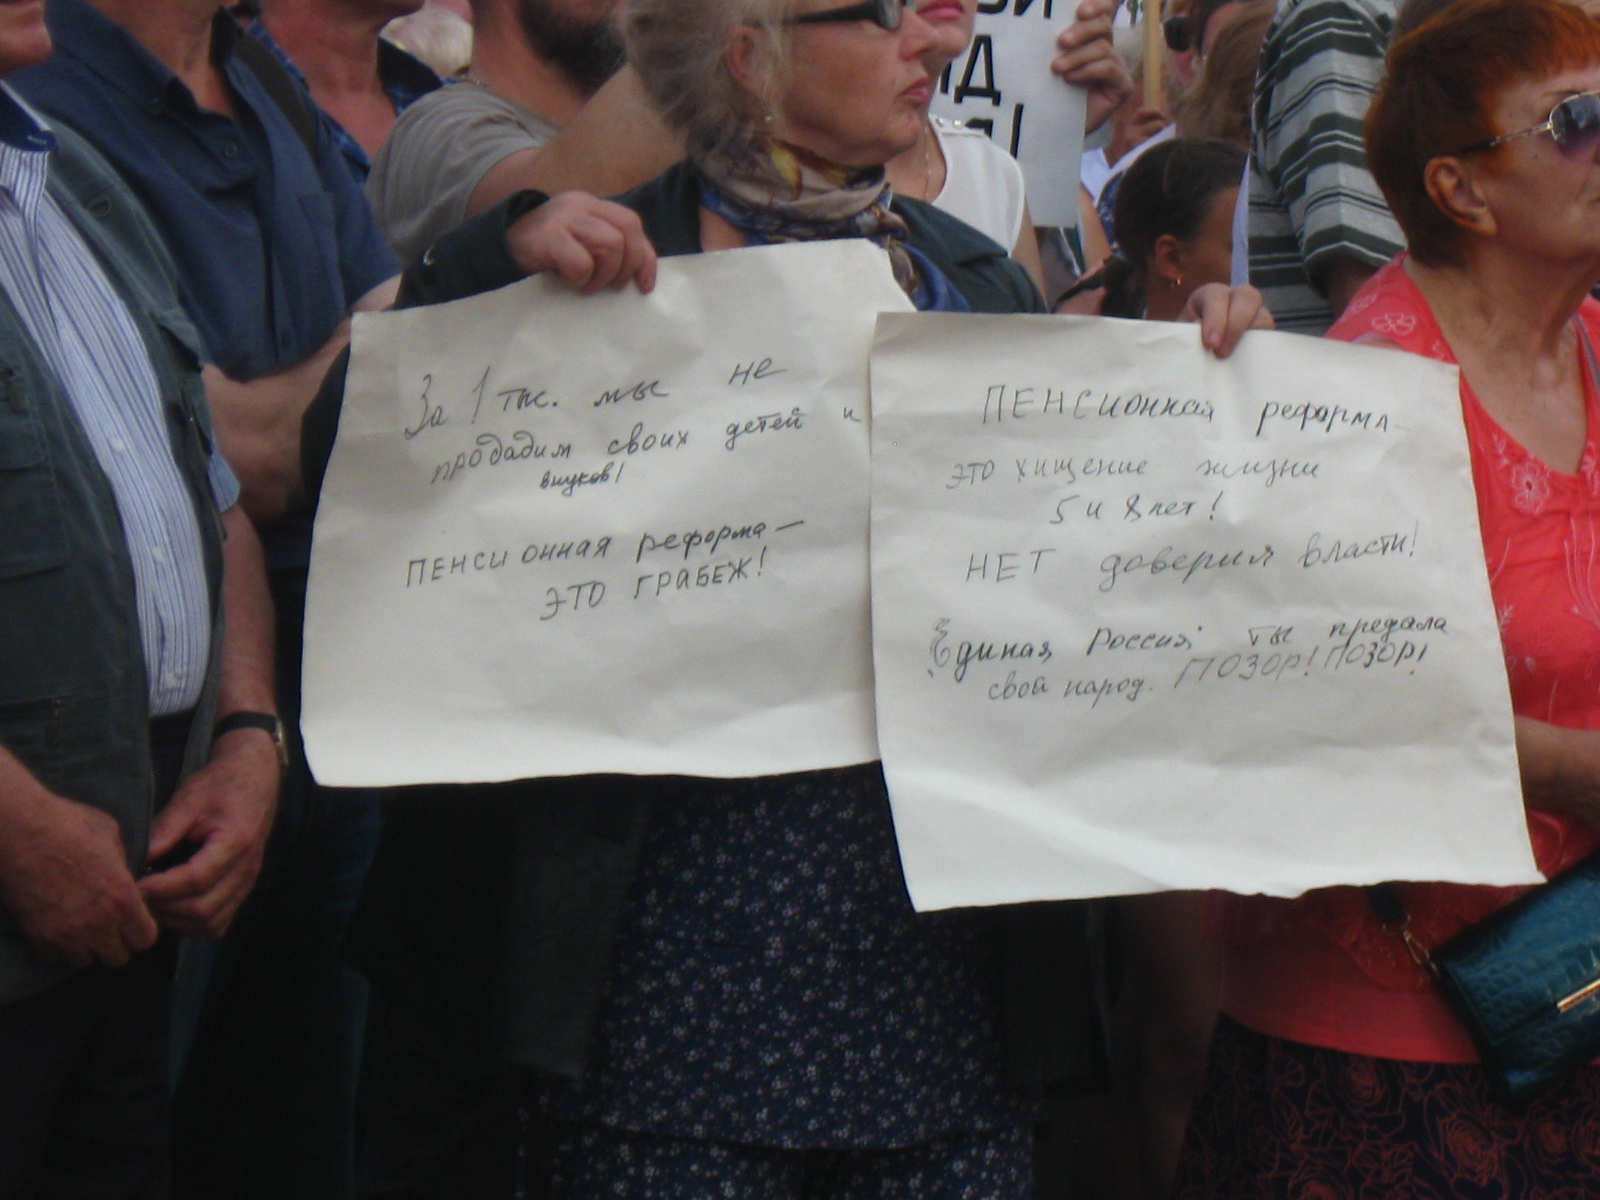 За 1 тыс. мы не
прададим своих детей и
внуков!
ПЕНСИОННАЯ реформа —
ЭТО ГРАБЕЖ!
ПЕНСИОННАЯ реформа-
ЭТО хищение жизни
5 и 8 лет!
НЕТ доверия власти!
Единая Россия; ты предала
свой народ. ПОЗОР! ПОЗОР!